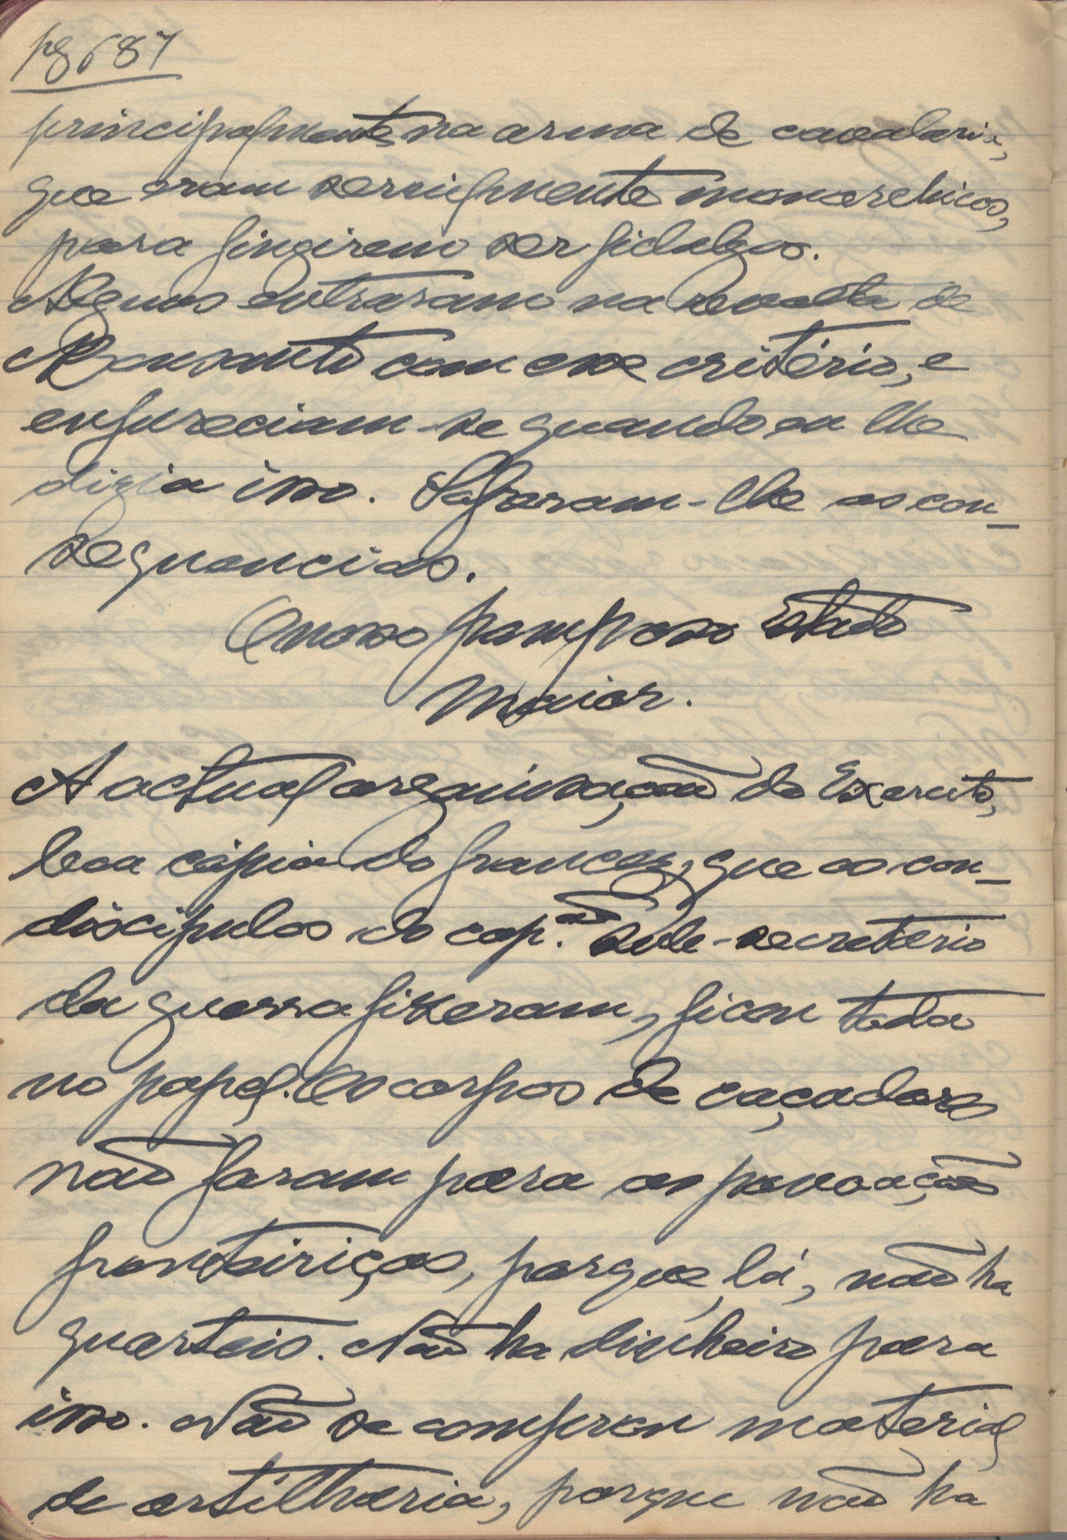 pg 687
principalmente na arma de cavalaria,
que eram servilmente monarchicos,
para fingirem ser fidalgos.
Alguns entraram na revolta de
Monsanto com esse critério, e
enfureciam-se quando eu lhe
dizia isso. Sofreram-lhe as con-
sequencias.
O nosso pomposo Estado
Maior.
A actual organisação do Exercito,
boa cópia do francez, que os con-
discipulos do cap.ão Sub-secretario
da guerra fizeram, ficou toda
no papel. Os corpos de caçadores
não foram para as povoações
fronteiriças, porque, lá, não ha
quarteis. Não ha dinheiro para
isso. Não se comprou material
de artilharia, porque não ha